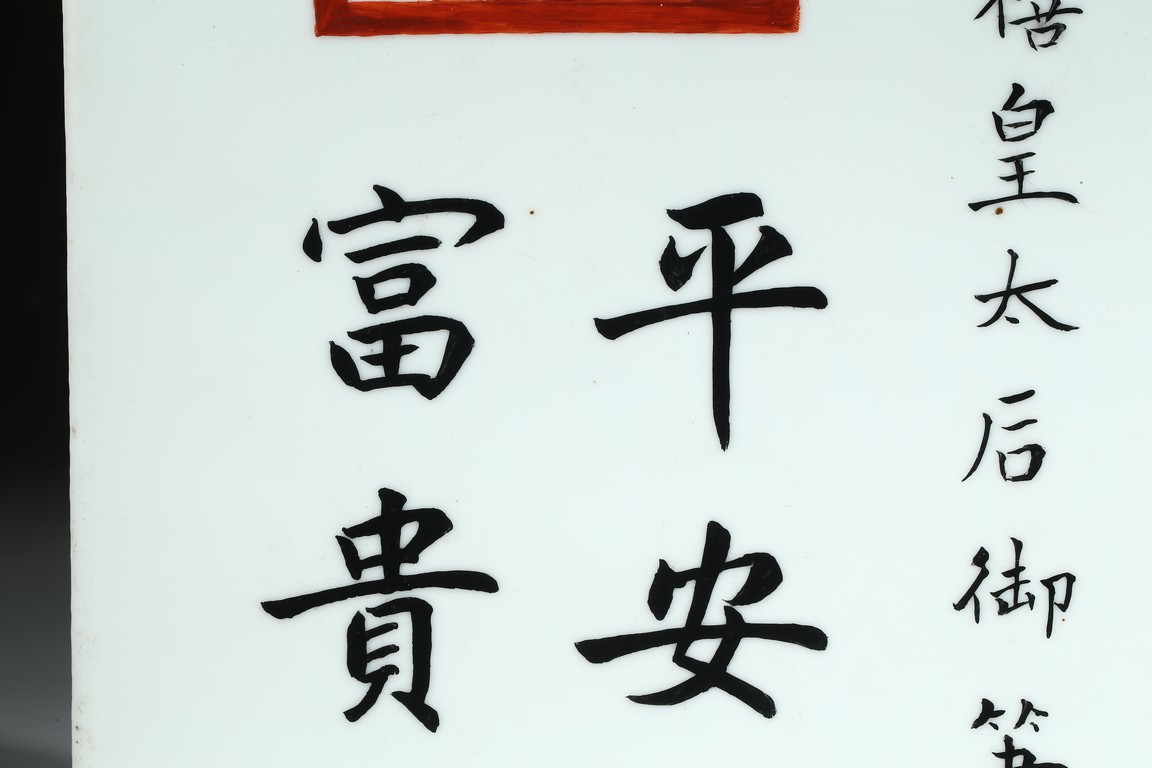 皇太后御筆
平安
富貴